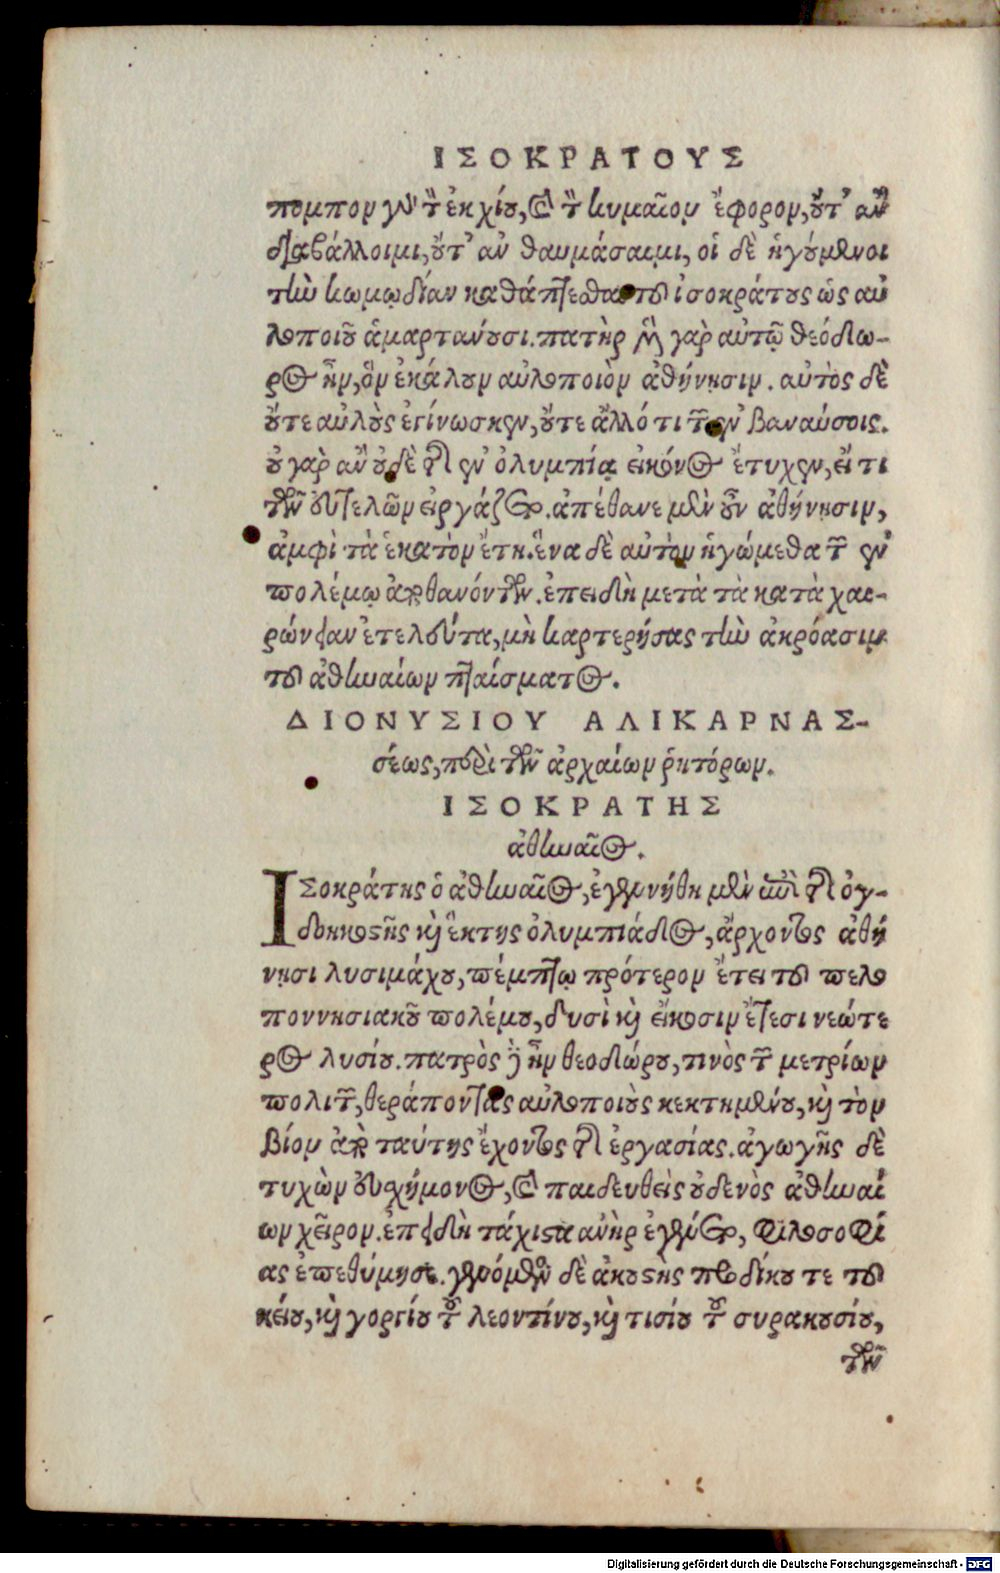 ΙΣΟΚΡΑΤΟΥΣ
πομπον γοῦν τὸν ἐκ χίου, καὶ τὸν κυμαῖον ἔφορον, οὔτ' ἂν
διαβάλλοιμι, οὔτ' ἂν θαυμάσαιμι, οἱ δὲ ἡγούμενοι
τὴν κωμῳδίαν καθάπτεσθαι τοῦ ἰσοκράτους ὡς αὐ
λοποιοῦ ἁμαρτάνουσι. πατὴρ μὴ γὰρ αὐτῷ θεόδω-
ρος ἦν, ὃν ἐκάλουν αὐλοποιὸν ἀθήνησιν. αὐτὸς δὲ
οὔτε αὐλοὺς ἐγίνωσκεν, οὔτε ἄλλό τι τῶν ἐν βαναύσοις.
οὐ γὰρ ἂν οὐδὲ τῆς ἐν ὀλυμπίᾳ εἰκόνος ἔτυχεν, εἴ τι
τῶν εὐτελῶν εἰργάζετο. ἀπέθανε μὲν οὖν ἀθήνησιν,
ἀμφὶ τὰ ἑκατὸν ἔτη. ἕνα δὲ αὐτὸν ἡγώμεθα τῶν ἐν
πολέμῳ ἀποθανόντων. ἐπειδὴ μετὰ τὰ κατὰ χαι-
ρώνειαν ἐτελεύτα, μὴ καρτερήσας τὴν ἀκρόασιν
τοῦ ἀθηναίων πταίσματος.
ΔΙΟΝΥΣΙΟΥ ΑΛΙΚΑΡΝΑΣ-
σέως, περὶ τῶν ἀρχαίων ῥητόρων.
ΙΣΟΚΡΑΤΗΣ
ἀθηναῖος.
ΙΣοκράτης ὁ ἀθηναῖος, ἐγεννήθη μὲν ἐπὶ τῆς ὀγ-
δοηκοστῆς καὶ ἕκτης ὀλυμπιάδος, ἄρχοντος ἀθή
νησι λυσιμάχου, πέμπτῳ πρότερον ἔτει τοῦ πελο
ποννησιακοῦ πολέμου, δυσὶ καὶ εἴκοσιν ἔτεσι νεώτε
ρος λυσίου. πατρὸς δὲ ἦν θεοδώρου, τινὸς τῶν μετρίων
πολιτῶν, θεράποντας αὐλοποιοὺς κεκτημένου, καὶ τὸν
βίον ἀπὸ ταύτης ἔχοντος τῆς ἐργασίας. ἀγωγῆς δὲ
τυχὼν εὐσχήμονος, καὶ παιδευθεὶς οὐδενὸς ἀθηναί
ων χεῖρον. ἐπειδὴ τάχιστα ἀνὴρ ἐγένετο, φιλοσοφί
ας ἐπεθύμησε. γενόμενος δὲ ἀκουστὴς προδίκου τε τοῦ
κείου, καὶ γοργίου τοῦ λεοντίνου, καὶ τισίου τοῦ συρακουσίου,
τῶν
Digitalisierung gefördert durch die Deutsche Forschungsgemeinschaft - DFG